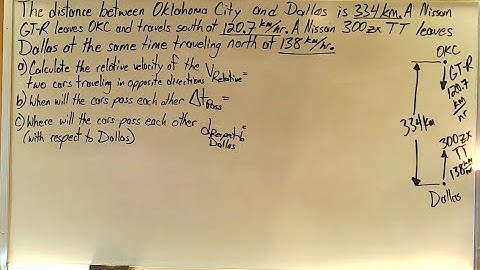 The distance between Oklahoma City and Dallas is 334 km. A Nissan
GT-R leaves OKC and travels south at 120.7 km/hr. A Nissan 300zx TT leaves
Dallas at the same time traveling north at 138 km/hr.
a) Calculate the relative velocity of the
two cars traveling in opposite directions V Relative =
b) When will the cars pass each other Δt Pass =
c) Where will the cars pass each other
(with respect to Dallas) d Respect to Dallas =
OKC
GT-R
120.7
km
hr
334 km
300zx
TT
138 km/hr
Dallas